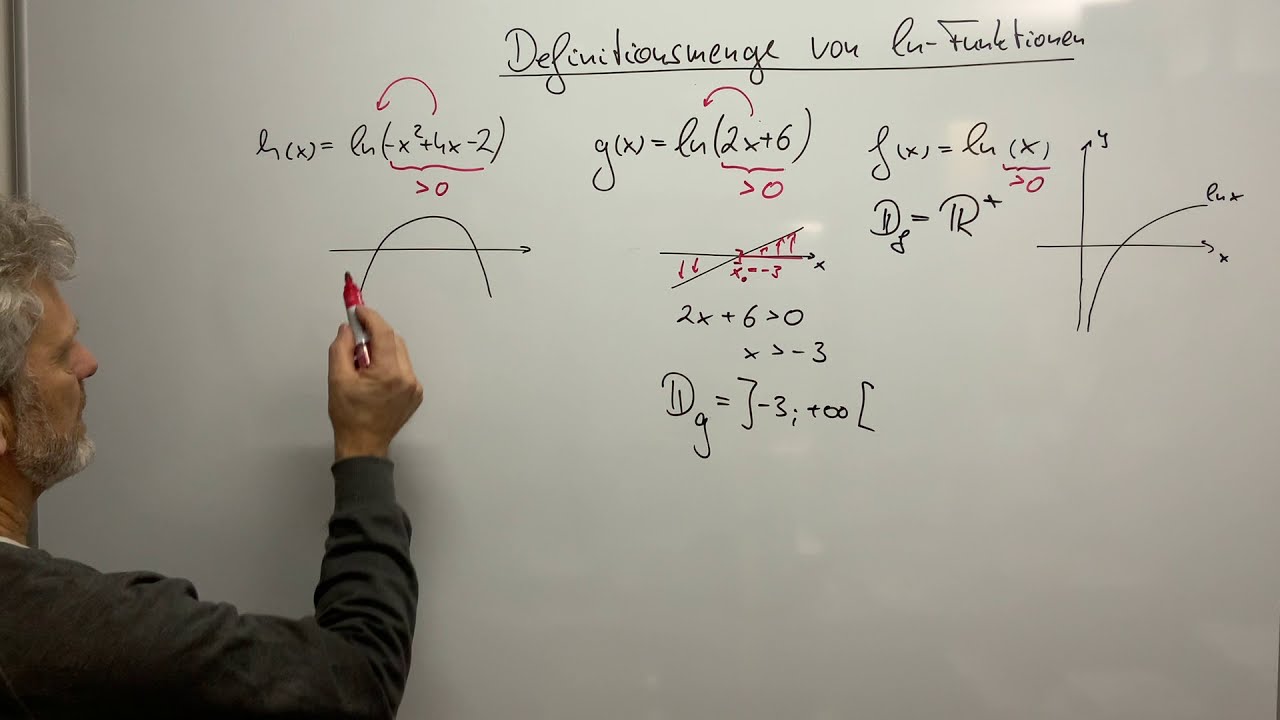 Definitionsmenge von ln-Funktionen
h(x) = ln(-x²+4x-2)
>0
g(x) = ln(2x+6)
>0
x₀ = -3
x
2x + 6 > 0
x > -3
𝔻g = ]-3; +∞[
f(x) = ln(x)
>0
𝔻f = ℝ⁺
y
ln x
x